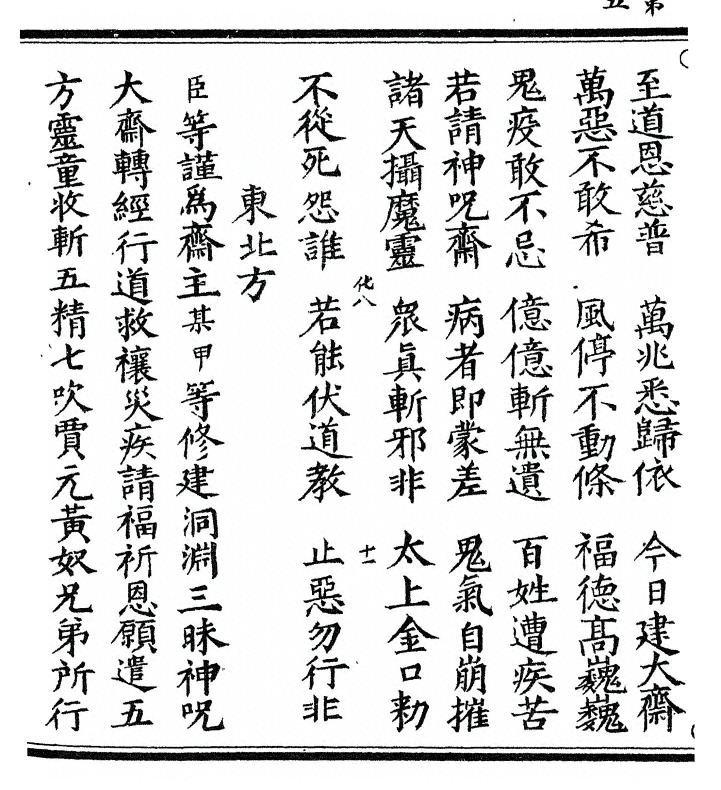 至道恩慈普　萬兆悉歸依　今日建大齋
萬惡不敢希　風停不動條　福德高巍巍
鬼疫敢不忌　億億斬無遺　百姓遭疾苦
若請神呪齋　病者即蒙差　鬼氣自崩摧
諸天攝魔靈　衆眞斬邪非　太上金口勑
化八　十一
不從死怨誰　若能伏道教　止惡勿行非
東北方
臣等謹爲齋主某甲等修建洞淵三昧神呪
大齋轉經行道救禳災疾請福祈恩願遣五
方靈童收斬五精七吹賈元黃奴兄弟所行